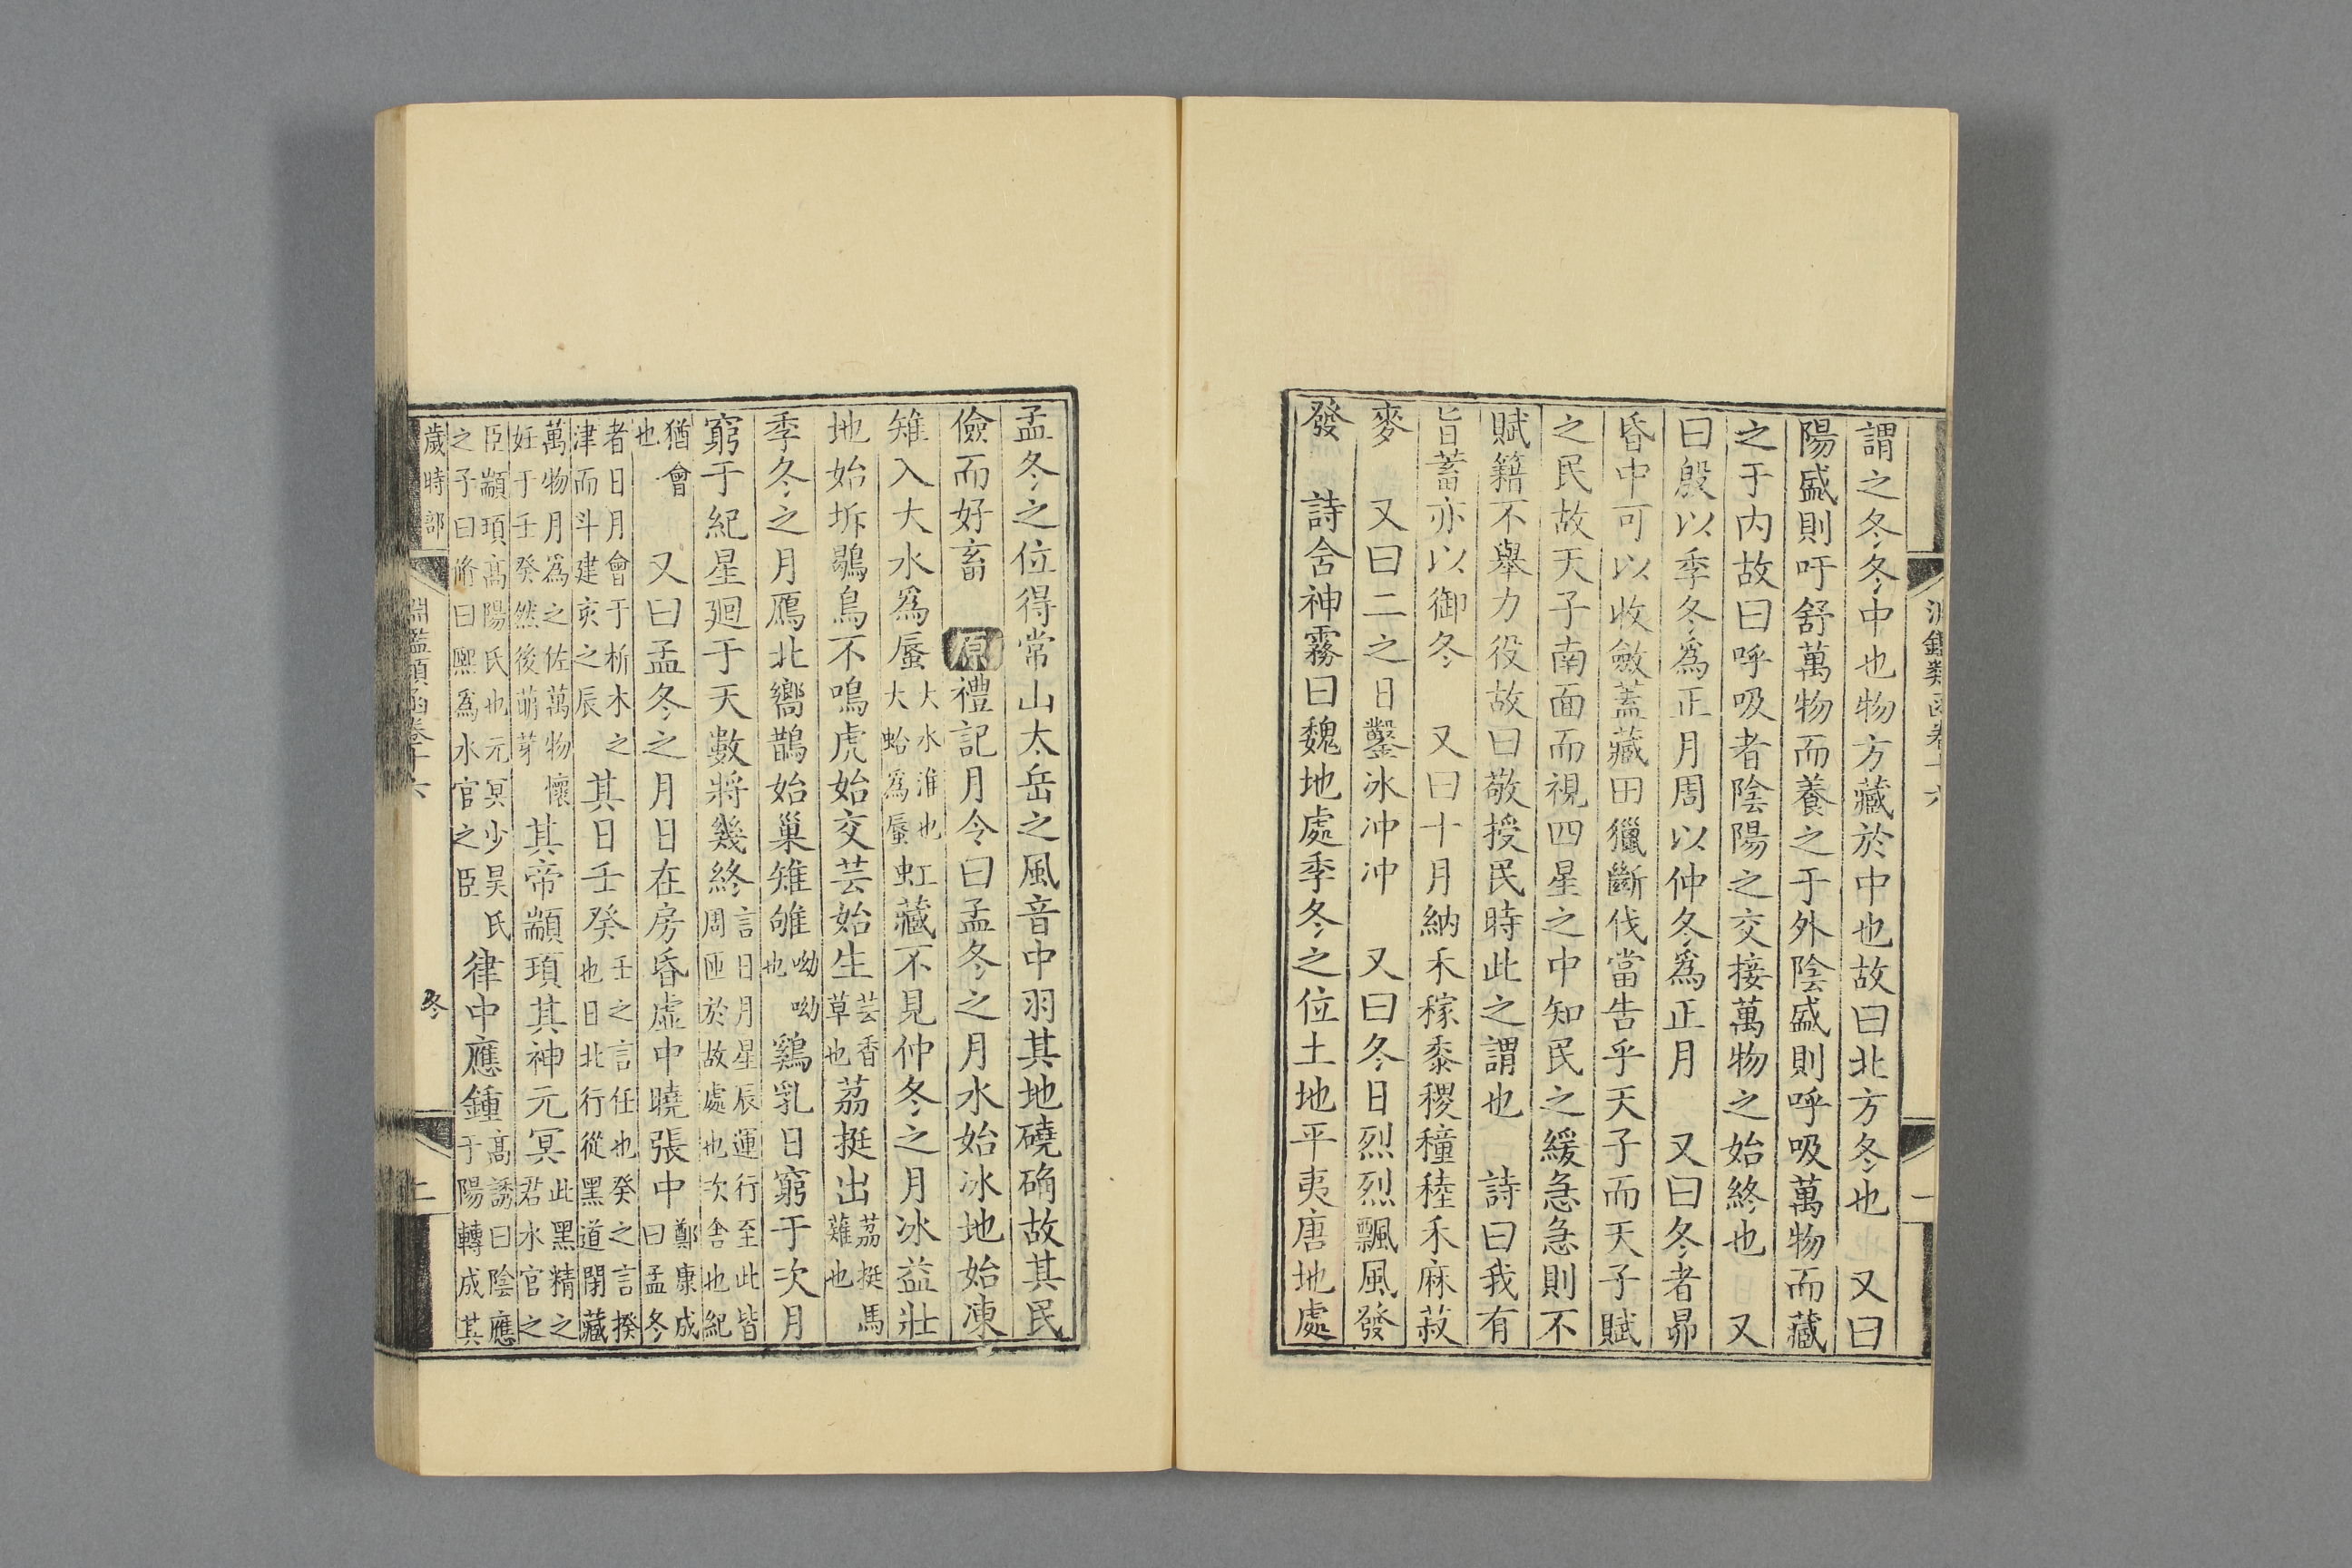 謂之冬冬中也物方藏於中也故曰北方冬也　又曰
陽盛則吁舒萬物而養之于外陰盛則呼吸萬物而藏
之于内故曰呼吸者陰陽之交接萬物之始終也　又
曰殷以季冬爲正月周以仲冬爲正月　又曰冬者昴
昏中可以收斂蓋藏田獵斷伐當告乎天子而天子賦
之民故天子南面而視四星之中知民之緩急急則不
賦籍不舉力役故曰敬授民時此之謂也　詩曰我有
旨蓄亦以御冬　又曰十月納禾稼黍稷穜稑禾麻菽
麥　又曰二之日鑿冰冲冲　又曰冬日烈烈飄風發
發　詩含神霧曰魏地處季冬之位土地平夷唐地處
孟冬之位得常山太岳之風音中羽其地磽确故其民
儉而好畜　原禮記月令曰孟冬之月水始冰地始凍
雉入大水爲蜃大水淮也大蛤爲蜃虹藏不見仲冬之月冰益壯
地始坼鶡鳥不鳴虎始交芸始生芸香草也荔挺出荔挺馬薤也
季冬之月鴈北嚮鵲始巢雉雊呦呦也鷄乳日窮于次月
窮于紀星廻于天數將幾終言日月星辰運行至此皆周匝於故處也次舍也紀
猶會也　又曰孟冬之月日在房昏虛中曉張中鄭康成曰孟冬
者日月會于析木之津而斗建亥之辰其日壬癸壬之言任也癸之言揆也日北行從黑道閉藏
萬物月爲之佐萬物懷妊于壬癸然後萌芽其帝顓頊其神元冥此黑精之君水官之
臣顓頊高陽氏也元冥少昊氏之子曰脩曰熈爲水官之臣律中應鍾高誘曰陰應于陽轉成其
歲時部
淵鑑類函卷十六
冬
二